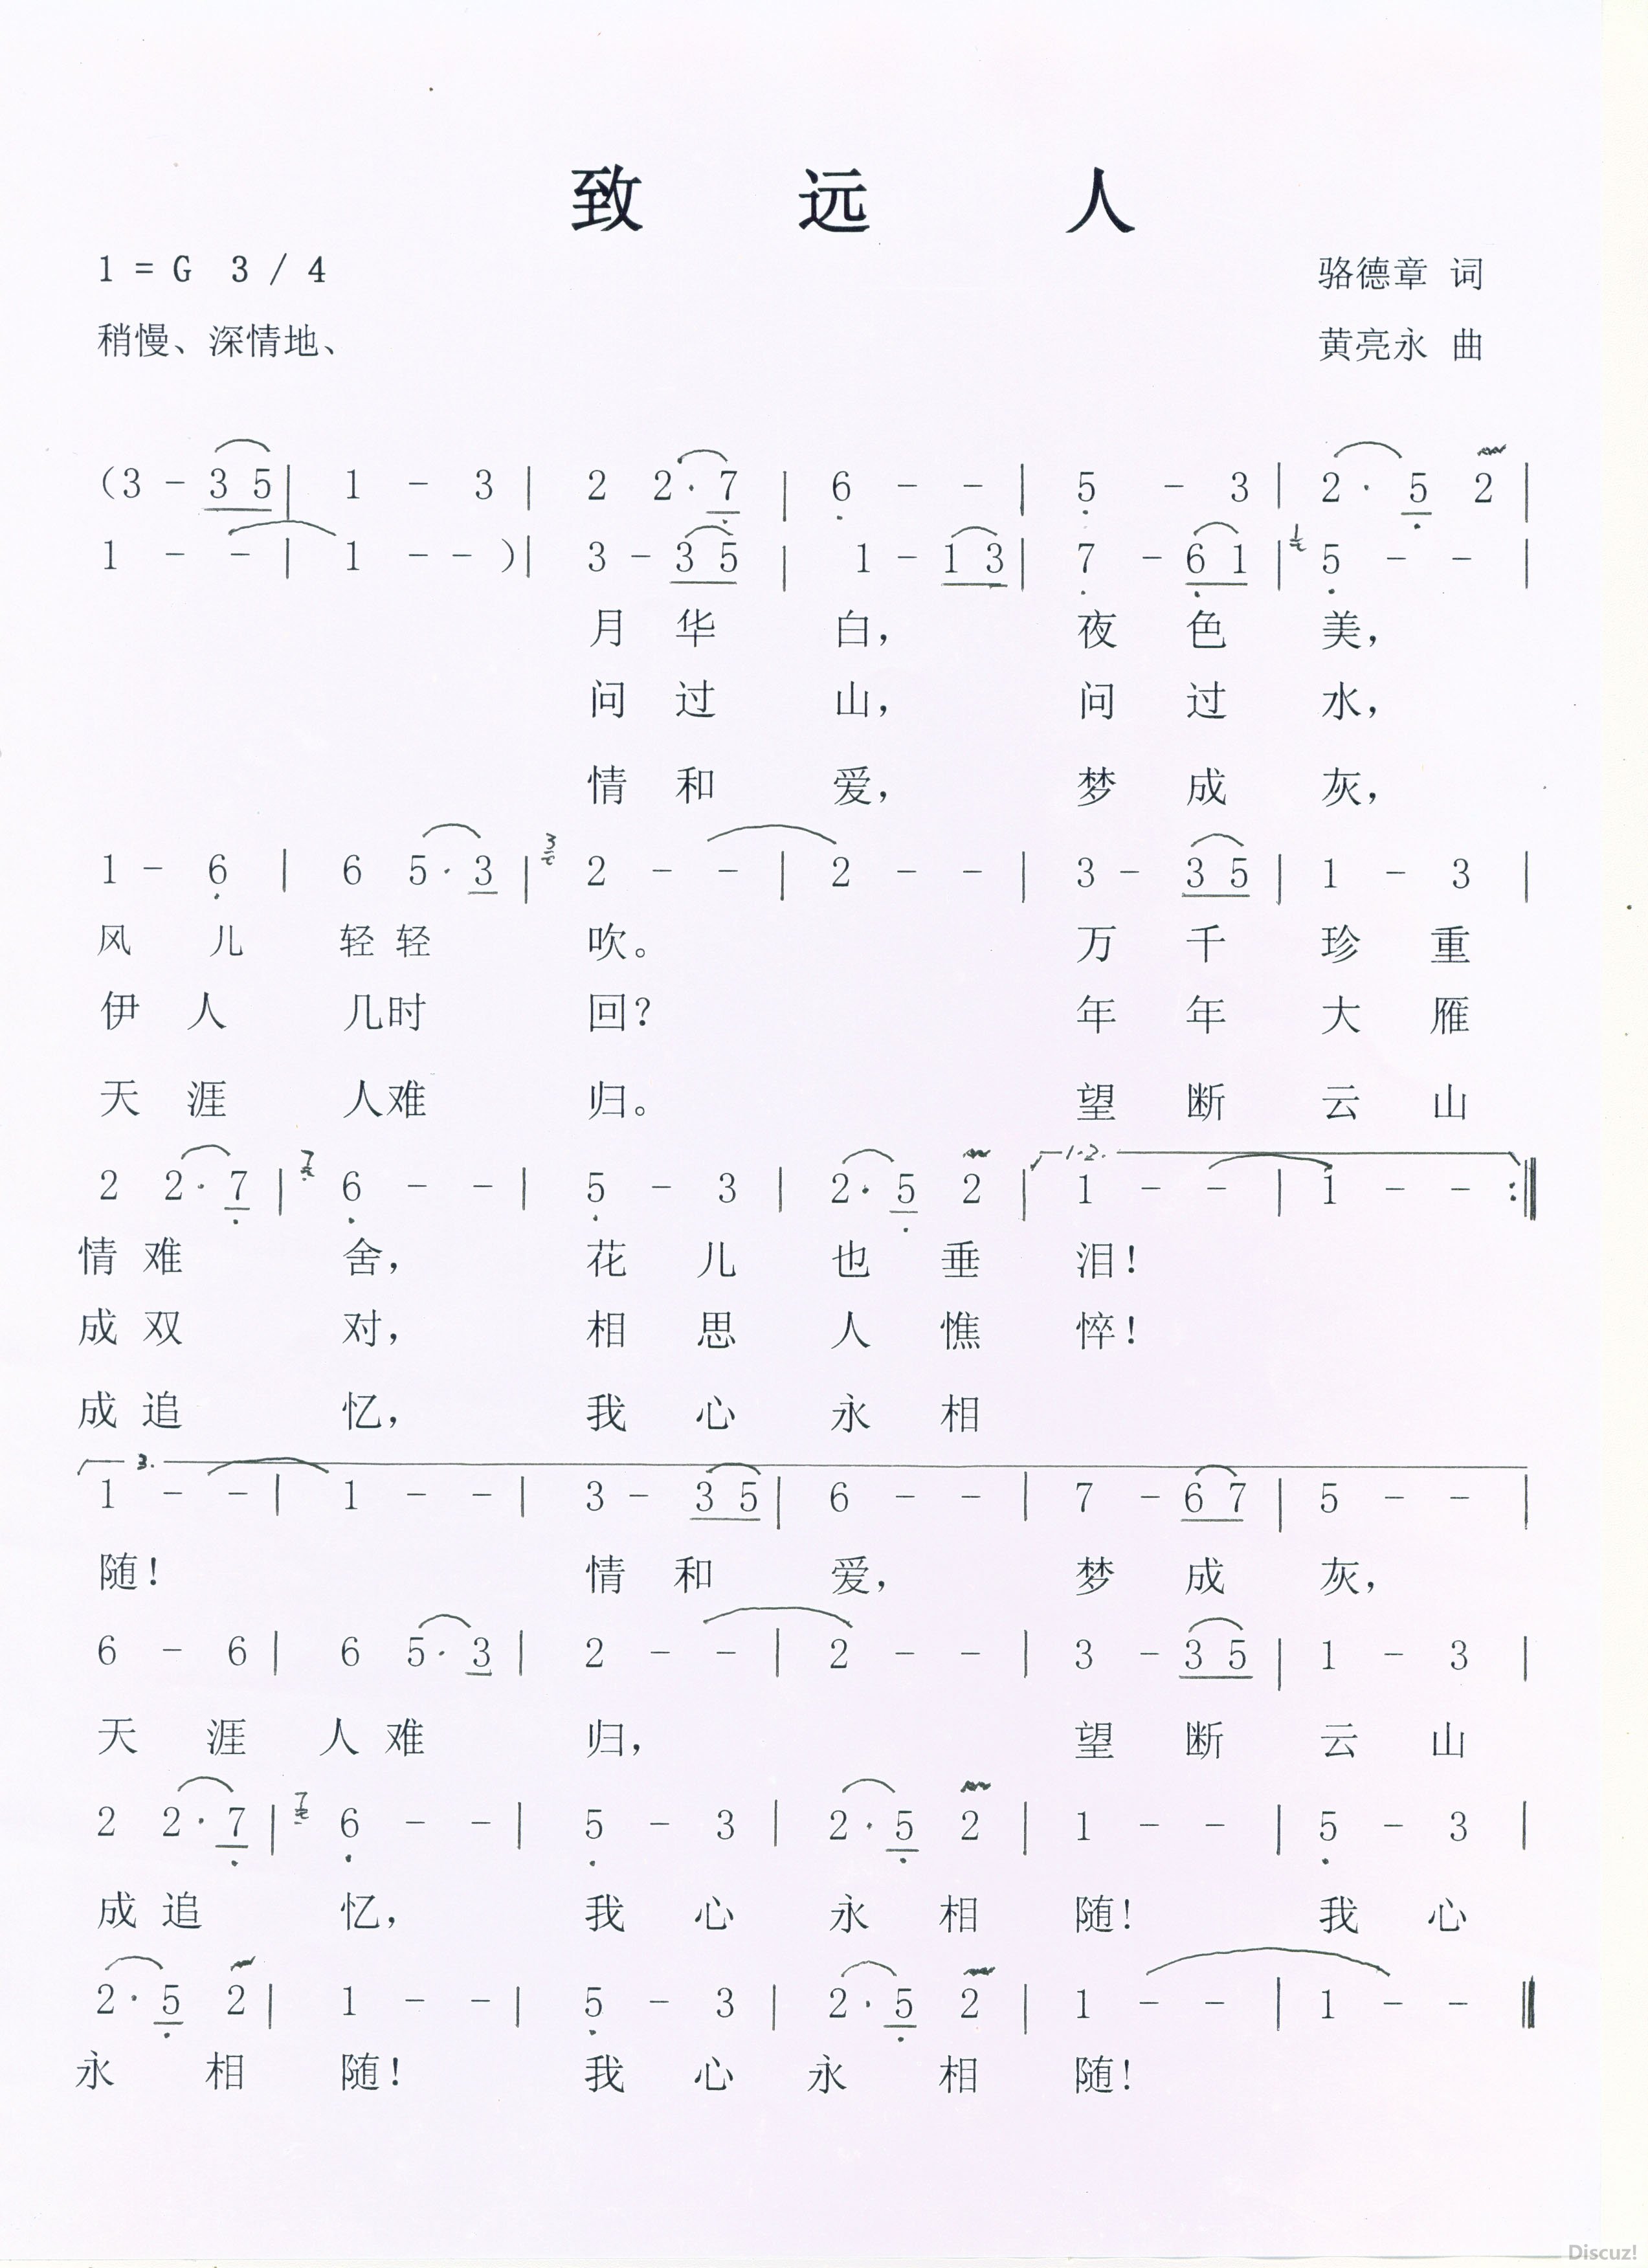 致 远 人
1 = G 3 / 4 骆德章 词
稍慢、深情地、 黄亮永 曲
(3 - 3 5 | 1 - 3 | 2 2· 7 | 6 - - | 5 - 3 | 2· 5 2 |
1 - - | 1 - - )| 3 - 3 5 | 1 - 1 3 | 7 - 6 1 | 5 - - |
月 华 白, 夜 色 美,
问 过 山, 问 过 水,
情 和 爱, 梦 成 灰,
1 - 6 | 6 5· 3 | 3 2 - - | 2 - - | 3 - 3 5 | 1 - 3 |
风 儿 轻 轻 吹。 万 千 珍 重
伊 人 几时 回? 年 年 大 雁
天 涯 人难 归。 望 断 云 山
2 2· 7 | 7 6 - - | 5 - 3 | 2· 5 2 | 1.2. 1 - - | 1 - - :‖
情 难 舍, 花 儿 也 垂 泪!
成 双 对, 相 思 人 憔 悴!
成 追 忆, 我 心 永 相
3. 1 - - | 1 - - | 3 - 3 5 | 6 - - | 7 - 6 7 | 5 - - |
随! 情 和 爱, 梦 成 灰,
6 - 6 | 6 5· 3 | 2 - - | 2 - - | 3 - 3 5 | 1 - 3 |
天 涯 人 难 归, 望 断 云 山
2 2· 7 | 7 6 - - | 5 - 3 | 2· 5 2 | 1 - - | 5 - 3 |
成 追 忆, 我 心 永 相 随! 我 心
2· 5 2 | 1 - - | 5 - 3 | 2· 5 2 | 1 - - | 1 - - ‖
永 相 随! 我 心 永 相 随!
Discuz!